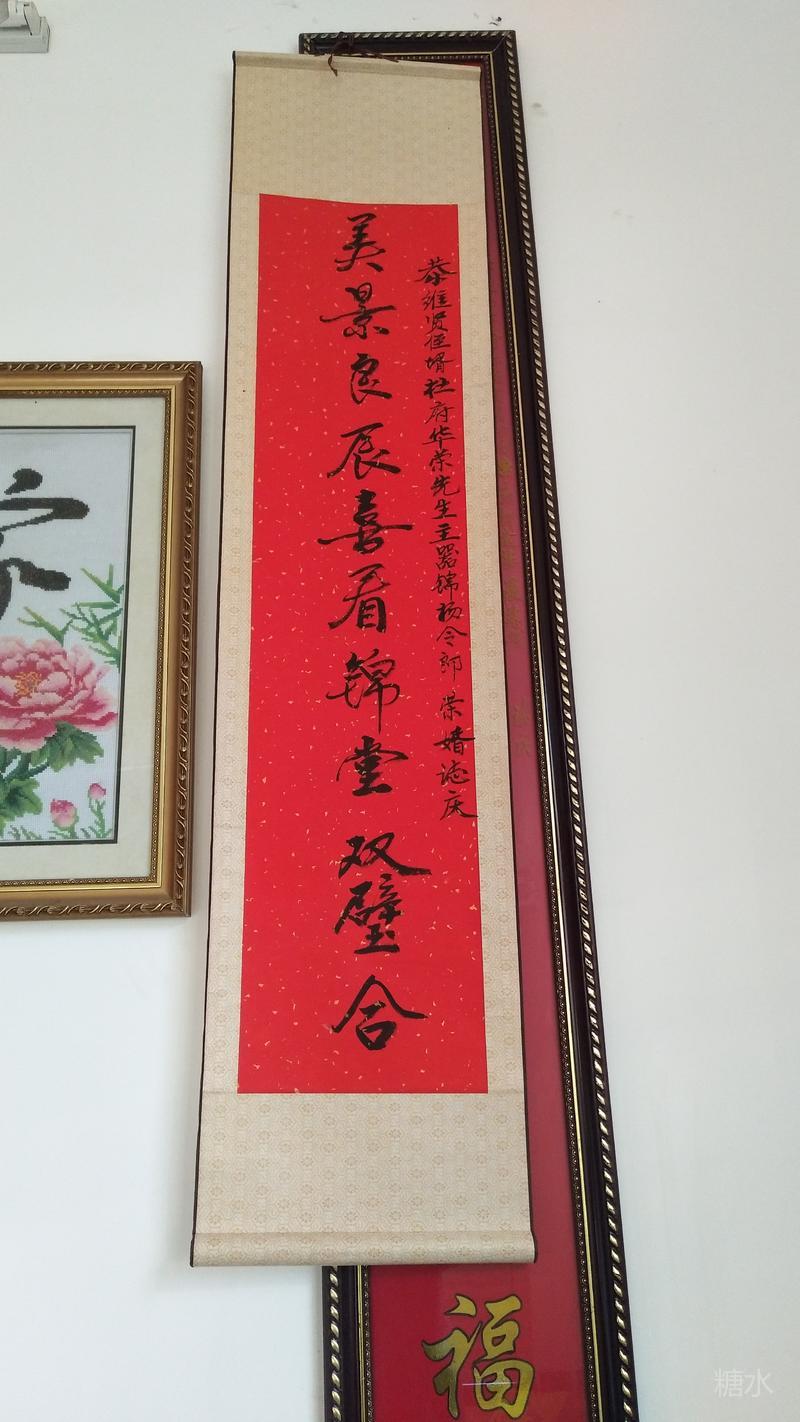 恭维贤侄婿杜府华荣先生主器锦杨令郎 荣婚志庆
美景良辰喜看锦堂双璧合
家
福
糖水